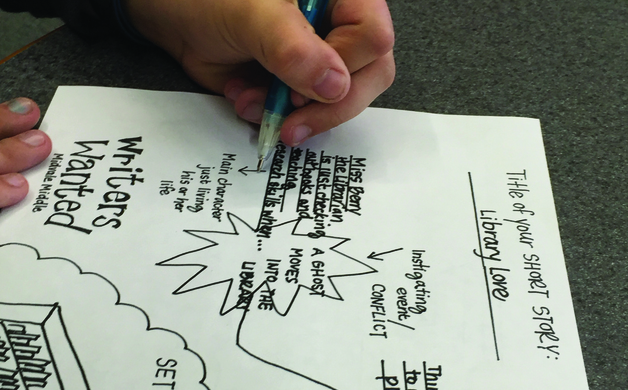 Title of your SHORT STORY:
Library Love
Instigating
event/
CONFLICT
Miss Berry
the librarian,
is just checking
out books and
teaching
research skills when...
A GHOST
MOVES
INTO THE
LIBRARY
Main character
just living
his or her
life
Writers
Wanted
Midvale Middle
to
SET